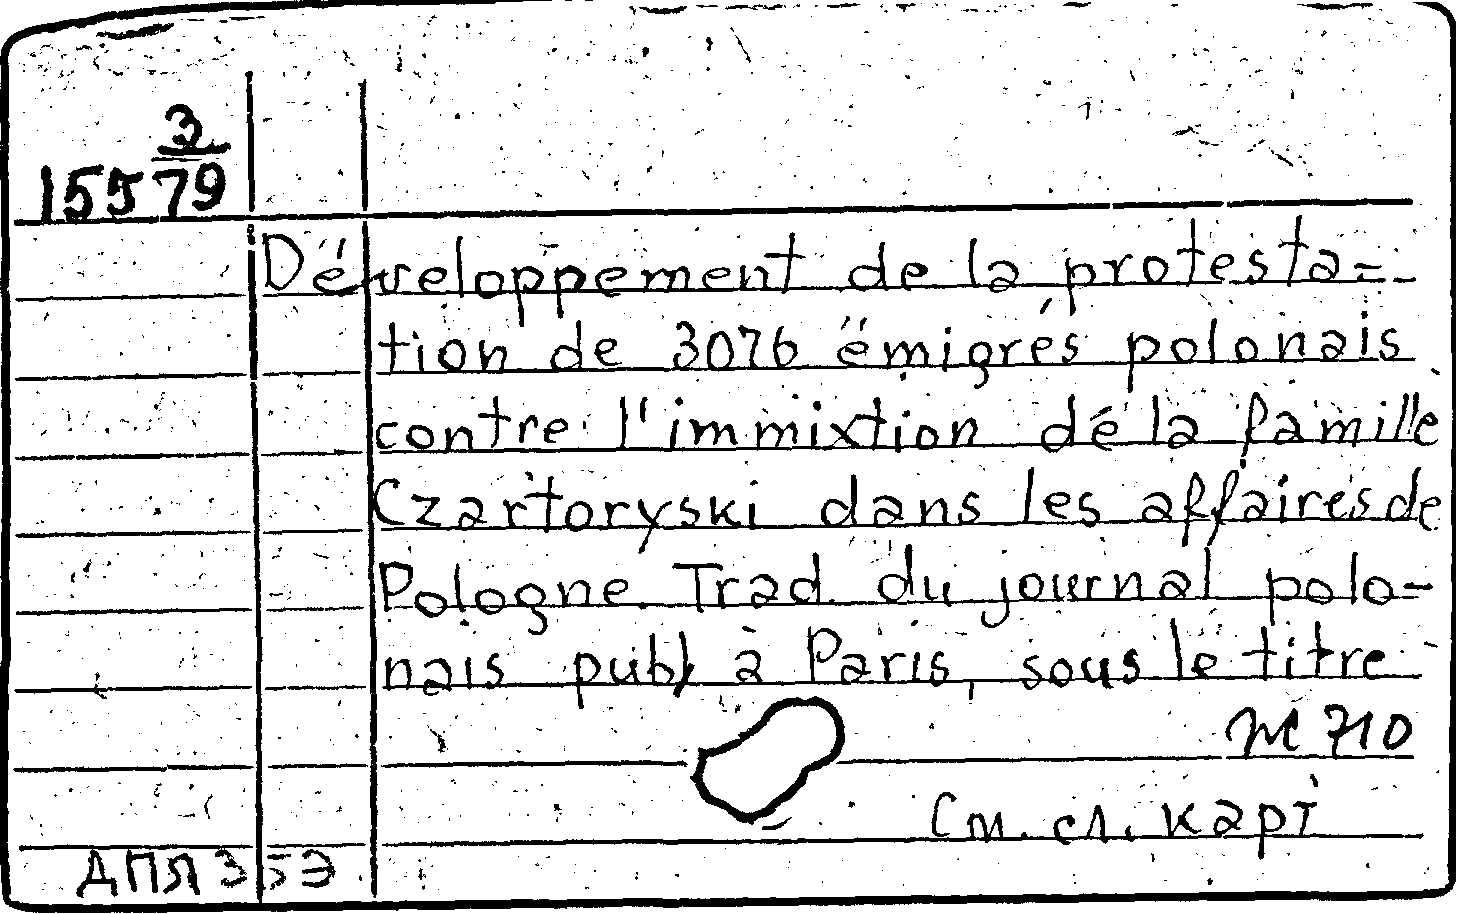 155 3/79
Développement de la protesta=
tion de 3076 émigrés polonais
contre l'immixtion de la famille
Czartoryski dans les affaires de
Pologne. Trad. du journal polo-
nais publ à Paris, sous le titre
М 710
См. сл. карт